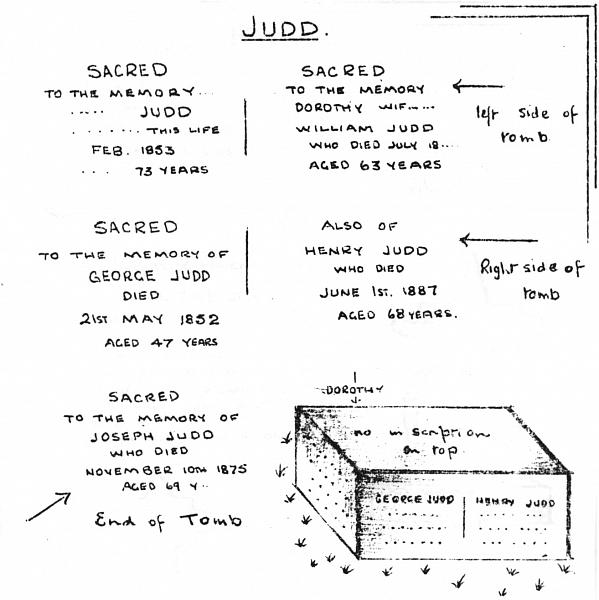 JUDD.
SACRED
TO THE MEMORY...
..... JUDD
....... THIS LIFE
FEB. 1853
... 73 YEARS
SACRED
TO THE MEMORY
DOROTHY WIF.....
WILLIAM JUDD
WHO DIED JULY 18....
AGED 63 YEARS
left side of
tomb
SACRED
TO THE MEMORY OF
GEORGE JUDD
DIED
21ST MAY 1852
AGED 47 YEARS
ALSO OF
HENRY JUDD
WHO DIED
JUNE 1ST. 1887
AGED 68 YEARS.
Right side of
tomb
SACRED
TO THE MEMORY OF
JOSEPH JUDD
WHO DIED
NOVEMBER 10TH 1875
AGED 69 Y..
End of Tomb
DOROTHY
no inscription
on top
GEORGE JUDD
HENRY JUDD